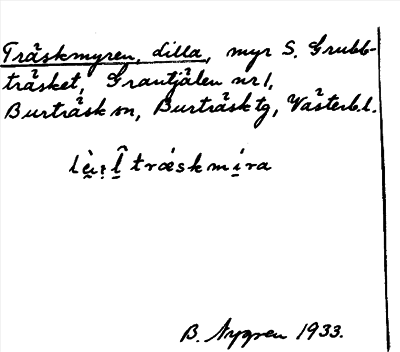 Träskmyren, lilla, myr S. Grubb-
träsket, Grantjälen nr 1,
Burträsk sn, Burträsk tg, Västerb. l.
träskmira
B. Nygren 1933.